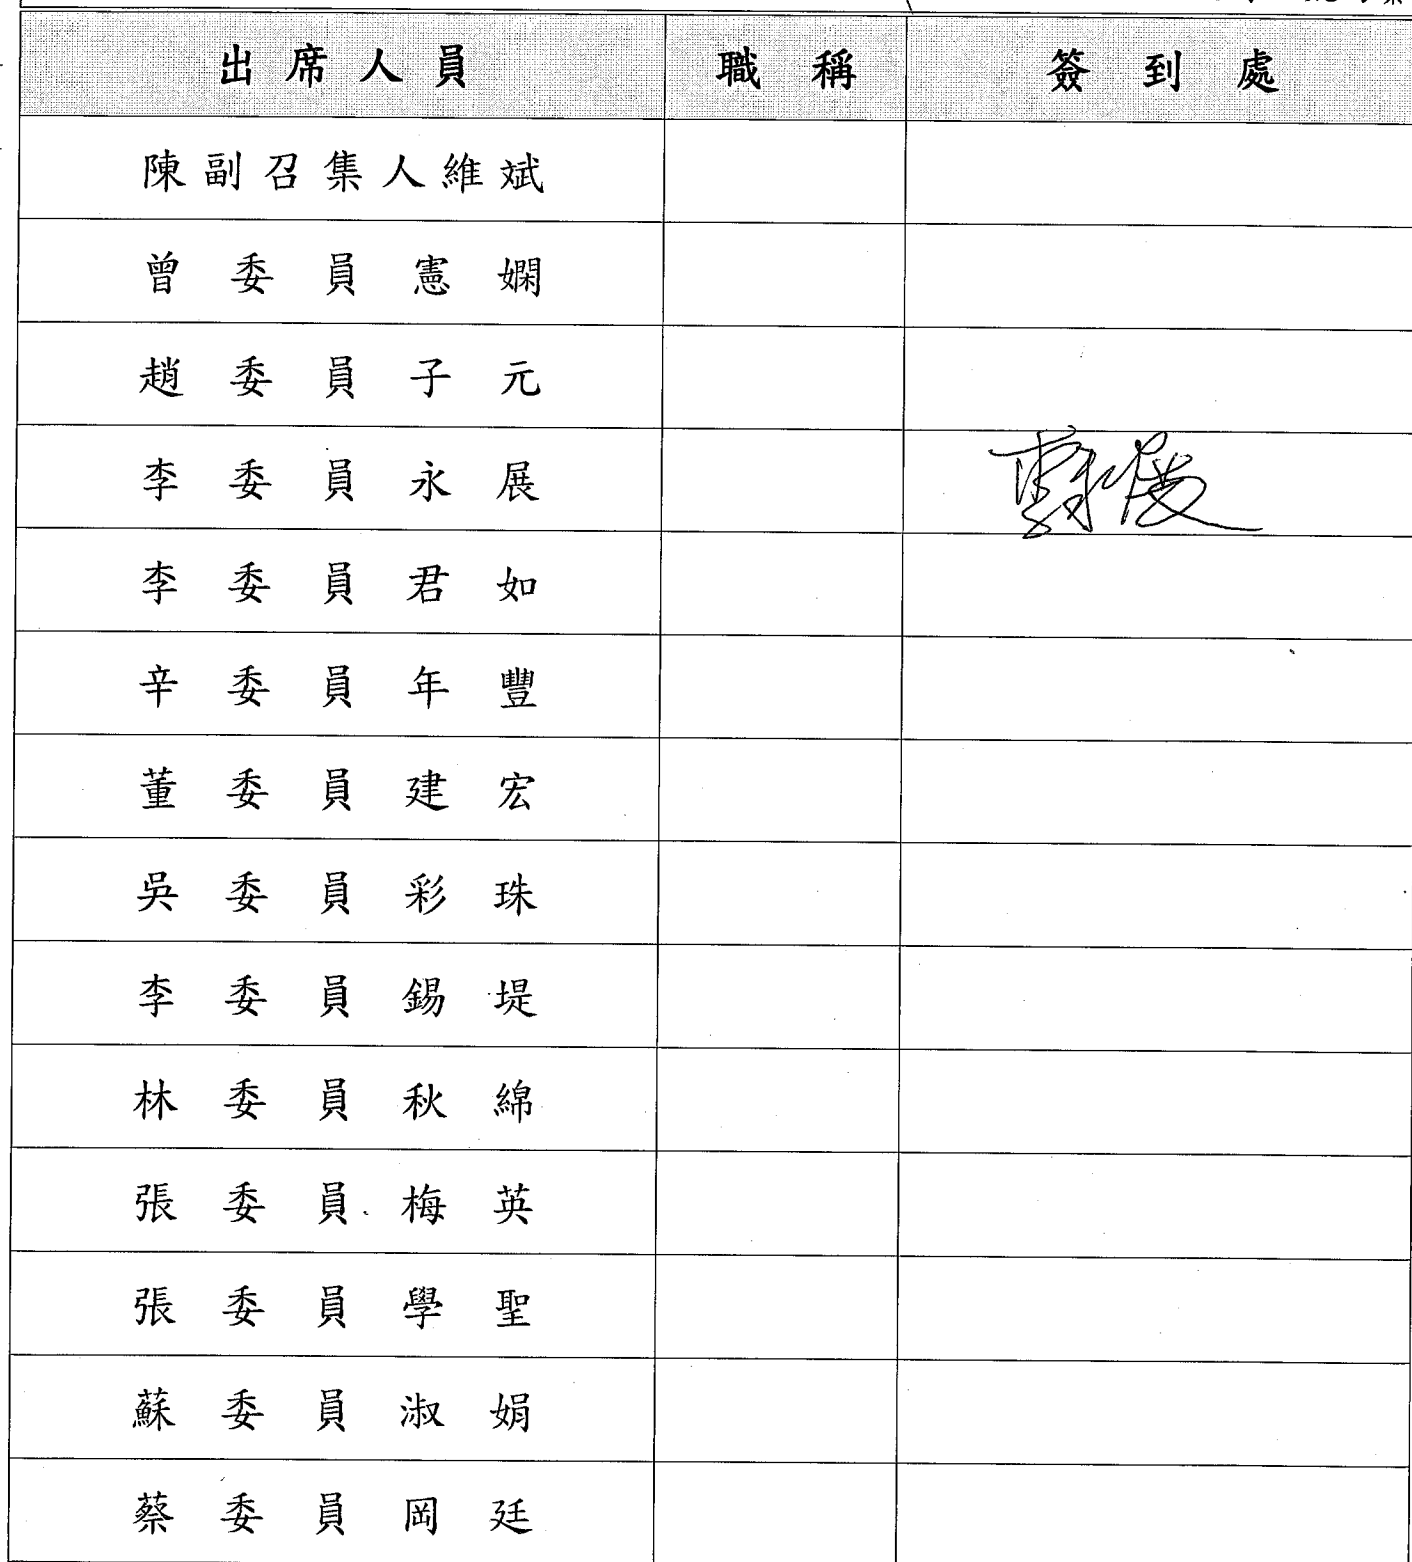 出席人員 職稱 簽到處
陳副召集人維斌
曾委員憲嫻
趙委員子元
李委員永展
李委員君如
辛委員年豐
董委員建宏
吳委員彩珠
李委員錫堤
林委員秋綿
張委員梅英
張委員學聖
蘇委員淑娟
蔡委員岡廷